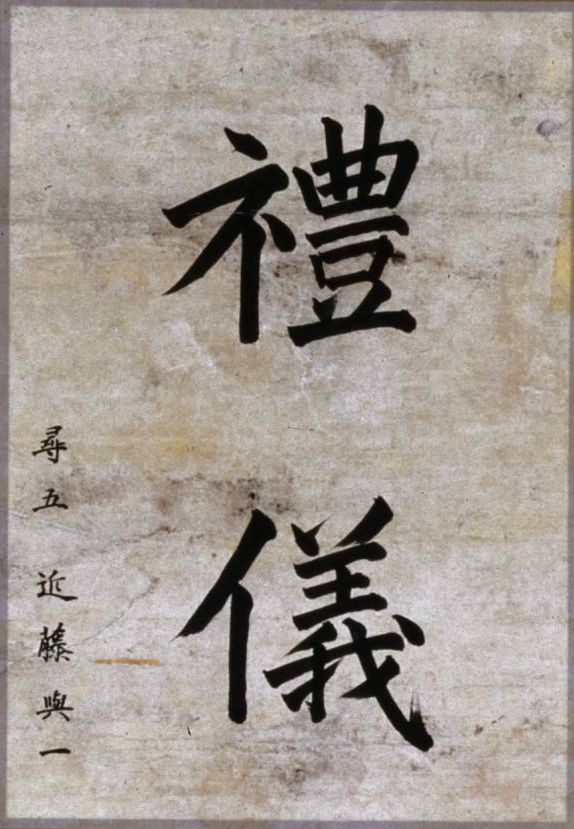 禮儀
尋五 近藤與一